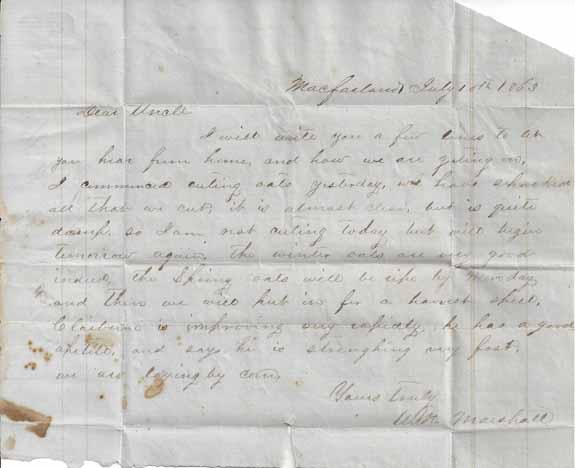 Macfarland July 10th 1863
Dear Uncle
I will write you a few lines to let
you hear from home, and how we are geting on,
I commenced cuting oats yesterday, we have shocked
all that we cut, it is almost clear, but is quite
damp. so I am not cuting today but will begin
tomorrow again. the winter oats are very good
indeed, the Spring oats will be ripe by Monday,
and then we will put in for a harvest spell.
Claiborne is improving very rapidly, he has a good
apetite, and says he is strengthing very fast.
we are laying by corn,
Yours Truly
Wm Marshall